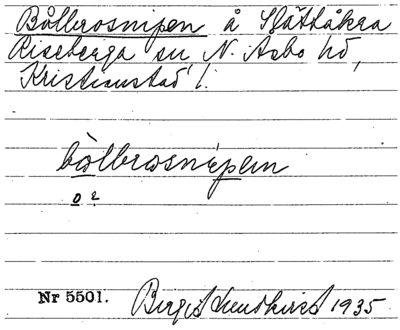 Bålbrosnipen å Slättåkra
Riseberga sn N. Åsbo hd,
Kristianstad l.
bålbrosnipen
Nr 5501. Birgit Lundkvist 1935